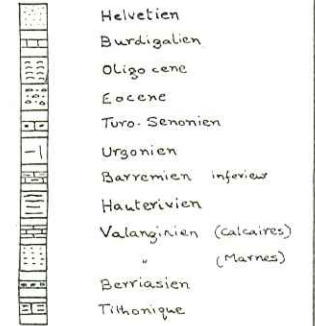 Helvetien
Burdigalien
Oligocene
Eocene
Turo-Senonien
Urgonien
Barremien inferieur
Hauterivien
Valanginien (calcaires)
" (Marnes)
Berriasien
Tithonique